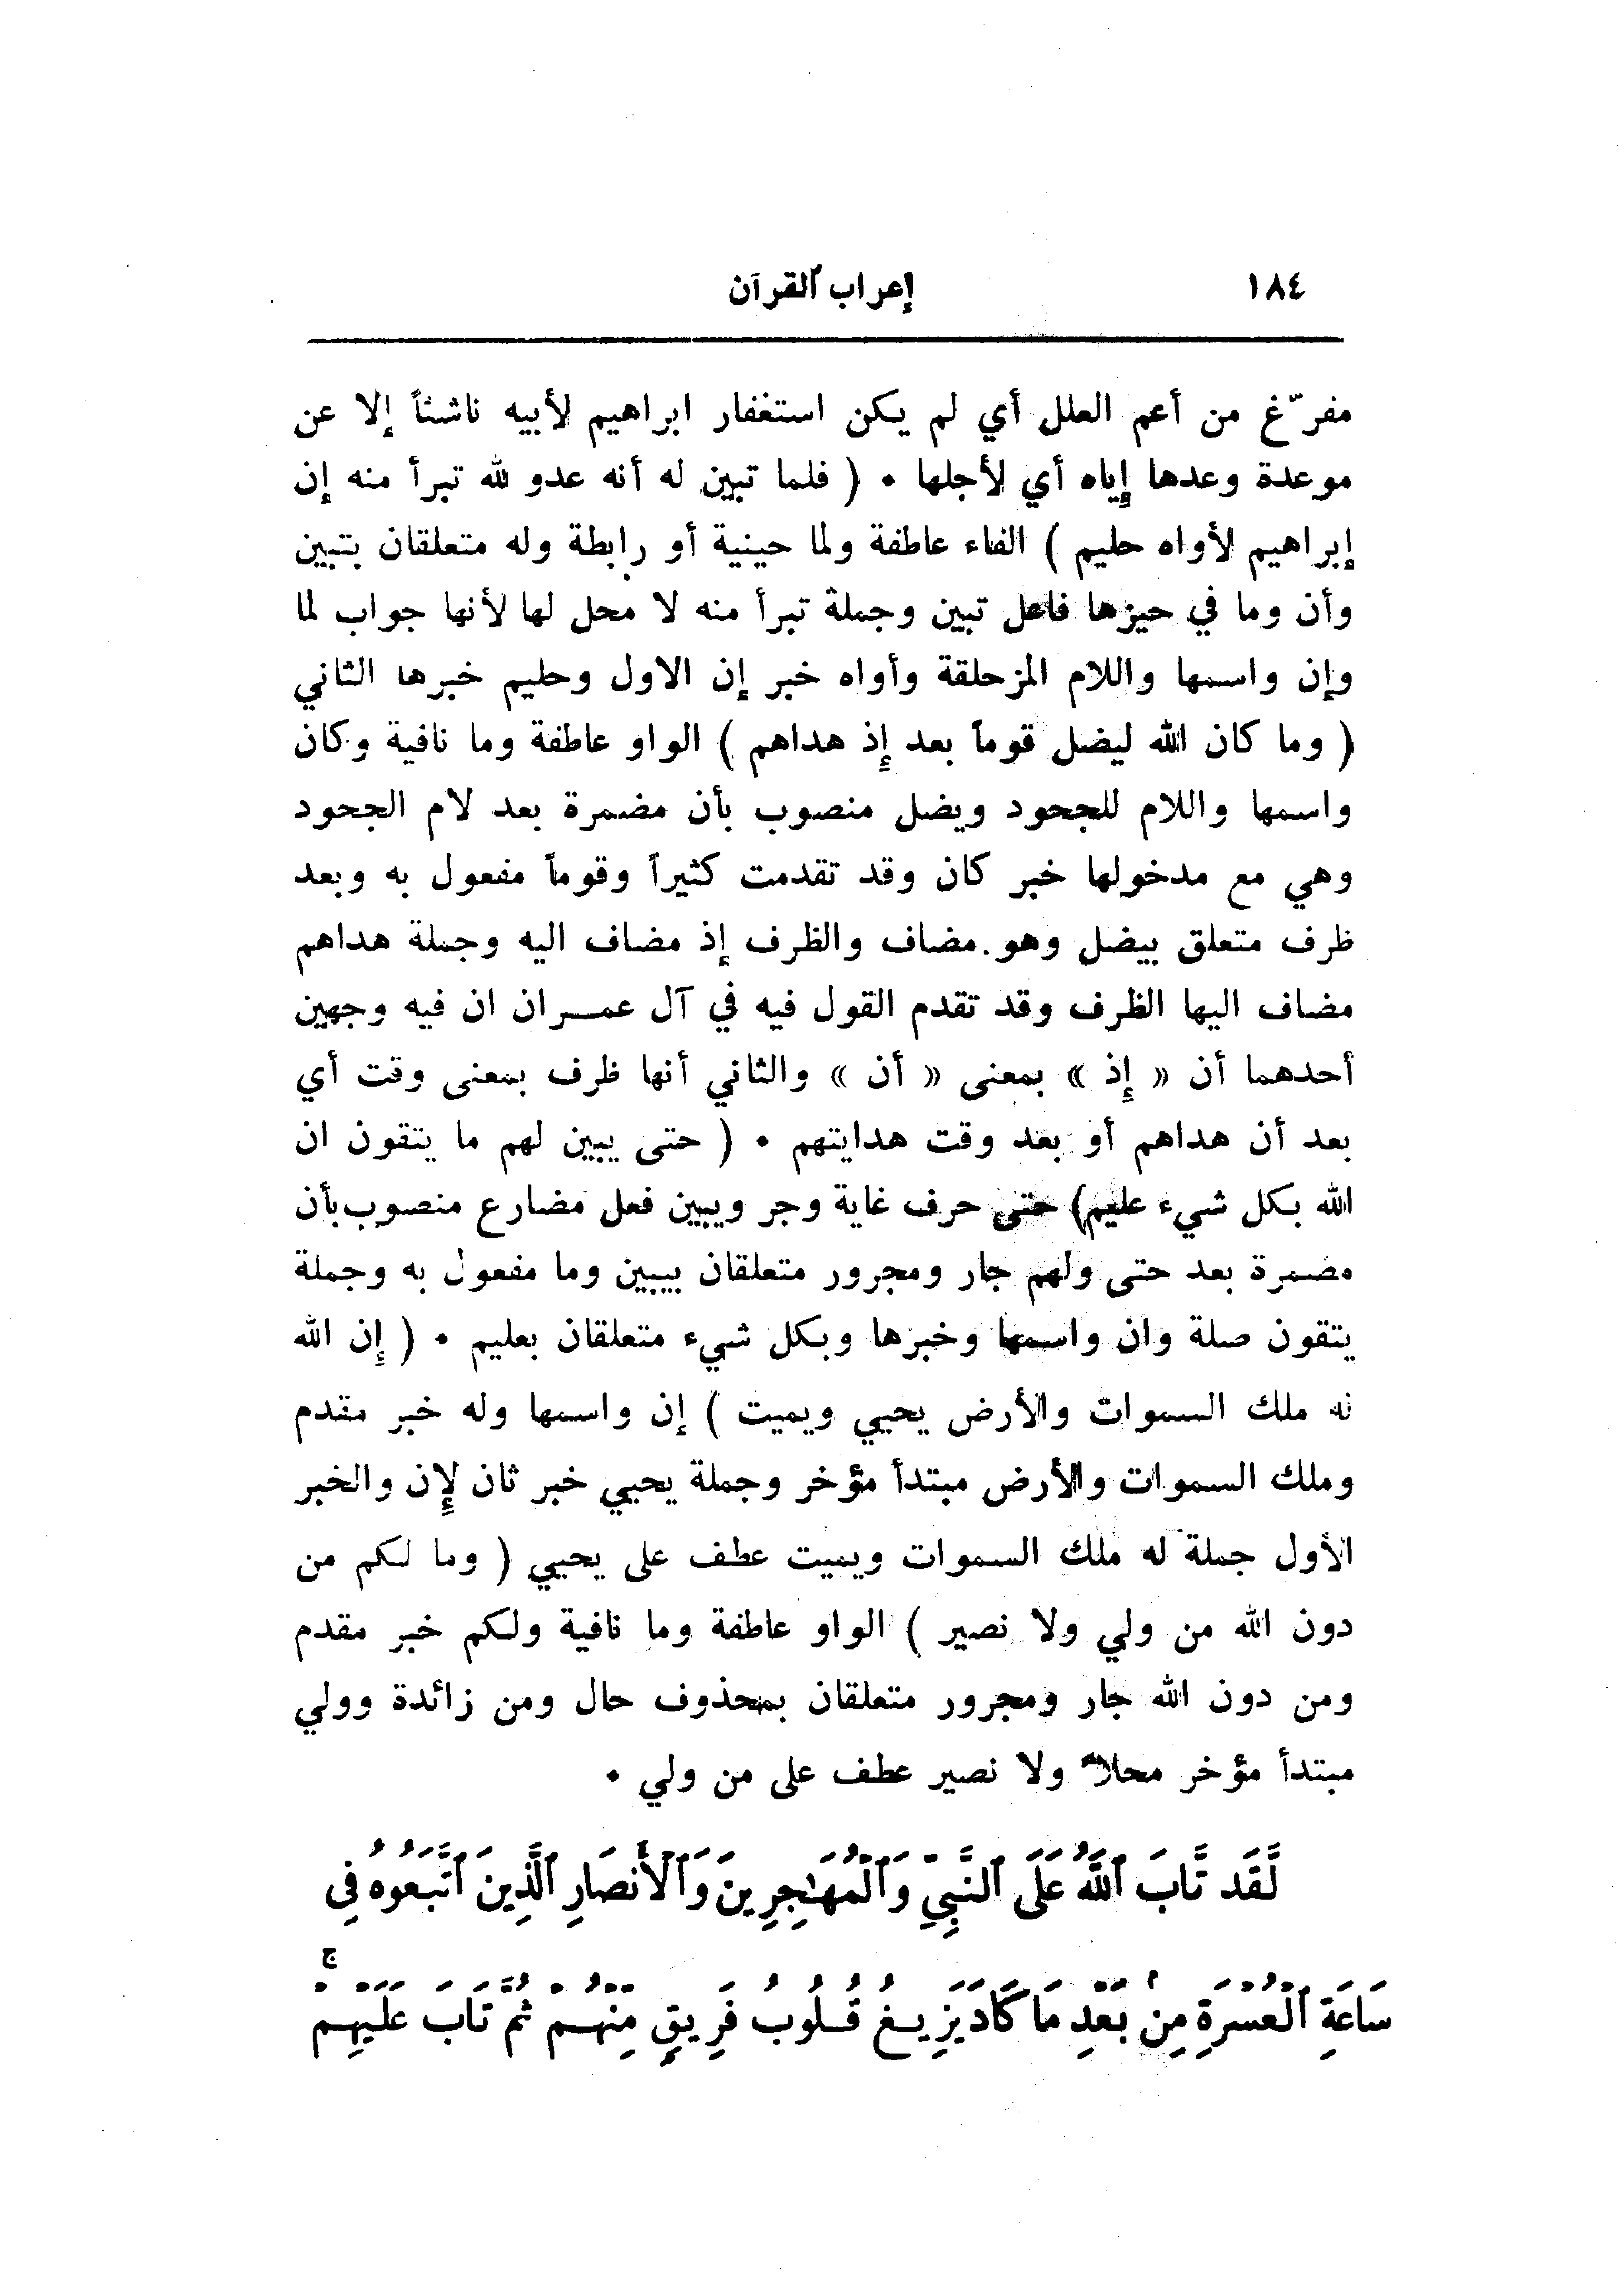 ١٨٤ إعراب القرآن
مفرّغ من أعم العلل أي لم يكن استغفار ابراهيم لأبيه ناشئاً إلا عن
موعدة وعدها إياه أي لأجلها ٠ ( فلما تبين له أنه عدو لله تبرأ منه إن
إبراهيم لأواه حليم ) الفاء عاطفة ولما حينية أو رابطة وله متعلقان بتبين
وأن وما في حيزها فاعل تبين وجملة تبرأ منه لا محل لها لأنها جواب لما
وإن واسمها واللام المزحلقة وأواه خبر إن الاول وحليم خبرها الثاني
( وما كان الله ليضل قوماً بعد إذ هداهم ) الواو عاطفة وما نافية وكان
واسمها واللام للجحود ويضل منصوب بأن مضمرة بعد لام الجحود
وهي مع مدخولها خبر كان وقد تقدمت كثيراً وقوماً مفعول به وبعد
ظرف متعلق بيضل وهو مضاف والظرف إذ مضاف اليه وجملة هداهم
مضاف اليها الظرف وقد تقدم القول فيه في آل عمران ان فيه وجهين
أحدهما أن « إذ » بمعنى « أن » والثاني أنها ظرف بمعنى وقت أي
بعد أن هداهم أو بعد وقت هدايتهم ٠ ( حتى يبين لهم ما يتقون ان
الله بكل شيء عليم) حتى حرف غاية وجر ويبين فعل مضارع منصوب بأن
مضمرة بعد حتى ولهم جار ومجرور متعلقان بيبين وما مفعول به وجملة
يتقون صلة وان واسمها وخبرها وبكل شيء متعلقان بعليم ٠ ( إن الله
له ملك السموات والأرض يحيي ويميت ) إن واسمها وله خبر مقدم
وملك السموات والأرض مبتدأ مؤخر وجملة يحيي خبر ثان لإن والخبر
الأول جملة له ملك السموات ويميت عطف على يحيي ( وما لكم من
دون الله من ولي ولا نصير ) الواو عاطفة وما نافية ولكم خبر مقدم
ومن دون الله جار ومجرور متعلقان بمحذوف حال ومن زائدة وولي
مبتدأ مؤخر محلاً ولا نصير عطف على من ولي ٠
لَّقَد تَّابَ ٱللَّهُ عَلَى ٱلنَّبِيِّ وَٱلْمُهَـٰجِرِينَ وَٱلْأَنصَارِ ٱلَّذِينَ ٱتَّبَعُوهُ فِى
سَاعَةِ ٱلْعُسْرَةِ مِنۢ بَعْدِ مَا كَادَ يَزِيغُ قُلُوبُ فَرِيقٍ مِّنْهُمْ ثُمَّ تَابَ عَلَيْهِمْۚ